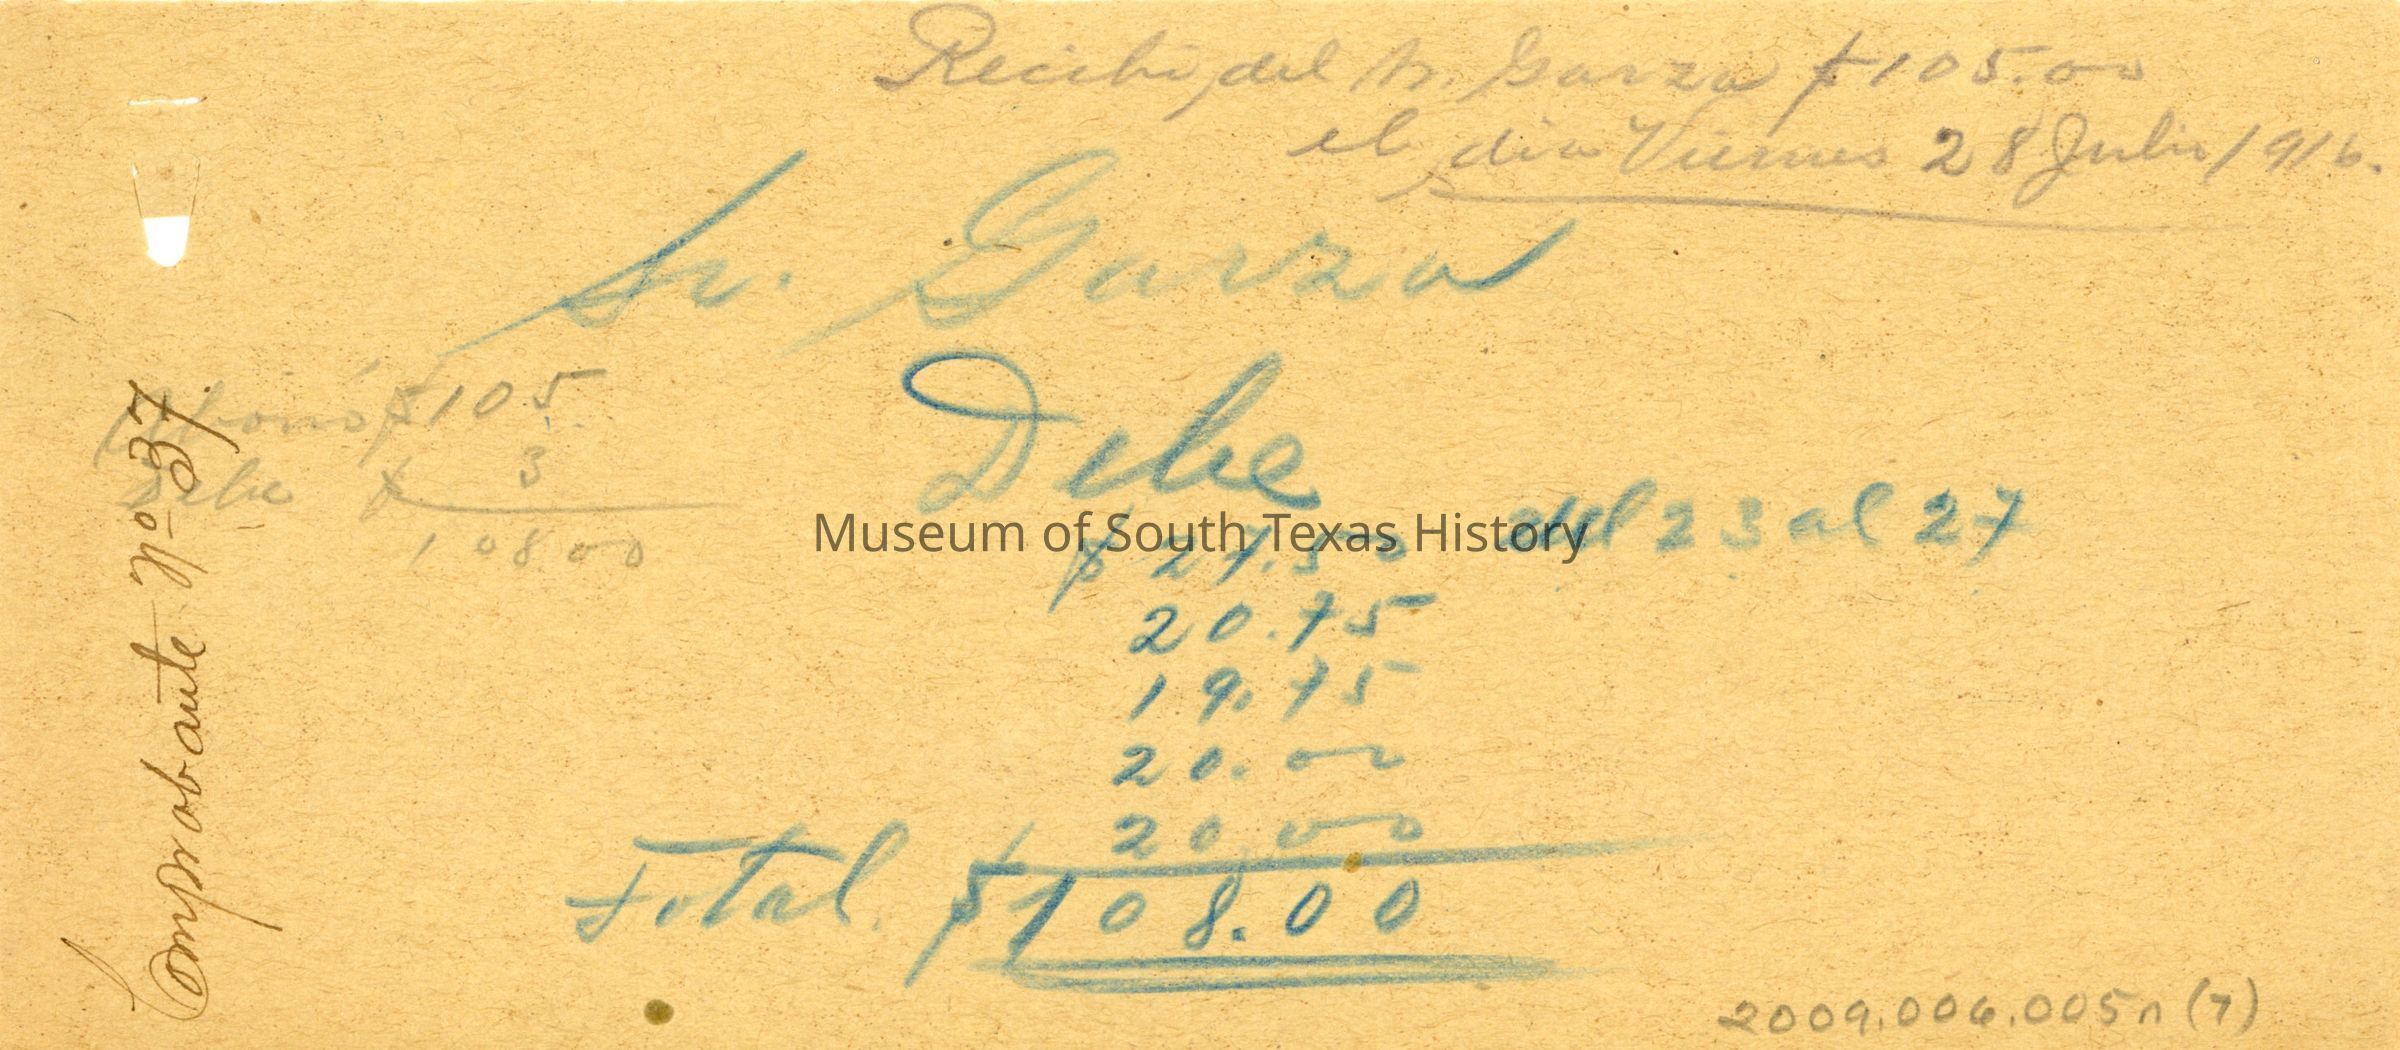 Recibi del Sr. Garza $105.00
el dia Viernes 28 Julio 1916.
Sr. Garza
Abonó $105.
Debe $ 3
108.00
Debe
$27.50 del 23 al 27
20.75
19.75
20.00
20.00
Total. $108.00
Comprobante No 37.
Museum of South Texas History
2009.006.005n (7)